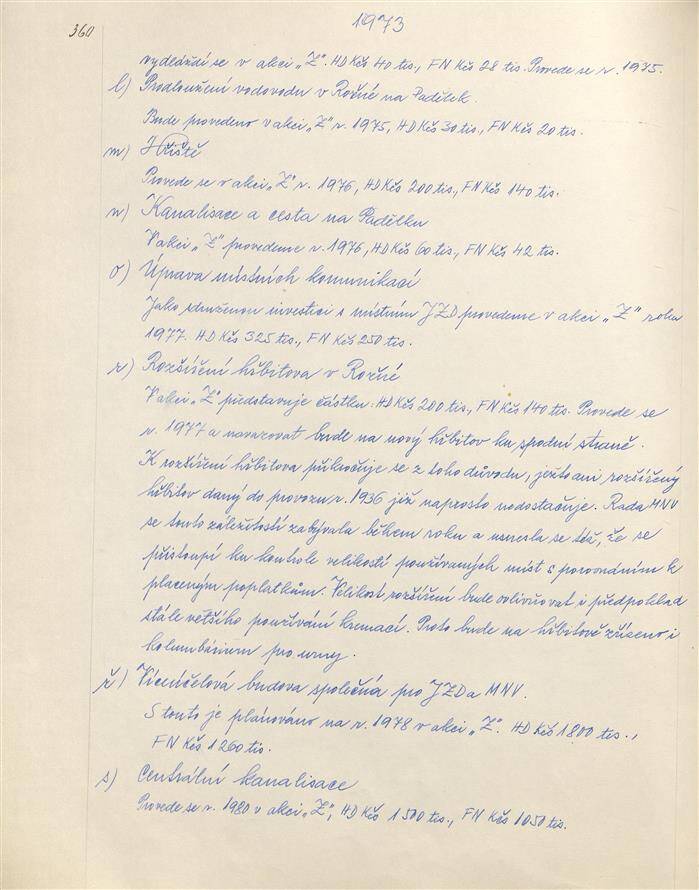 360
1973
vydláždí se v akci „Z". HD Kčs 40 tis., FN Kčs 28 tis. Provede se r. 1975.
l) Prodloužení vodovodu v Rožné na Padělek.
Bude provedeno v akci „Z" r. 1975, HD Kčs 30 tis., FN Kčs 20 tis.
m) Hřiště
Provede se v akci „Z" r. 1976, HD Kčs 200 tis., FN Kčs 140 tis.
n) Kanalisace a cesta na Padělku
V akci „Z" provedeme r. 1976, HD Kčs 60 tis., FN Kčs 42 tis.
o) Úprava místních komunikací
Jako sdruženou investici s místním JZD provedeme v akci „Z" roku
1977. HD Kčs 325 tis., FN Kčs 250 tis.
r) Rozšíření hřbitova v Rožné
V akci „Z" představuje částku HD Kčs 200 tis., FN Kčs 140 tis. Provede se
r. 1977 a navazovat bude na nový hřbitov ku spodní straně.
K rozšíření hřbitova přikročuje se z toho důvodu, ježto ani rozšířený
hřbitov daný do provozu r. 1936 již naprosto nedostačuje. Rada MNV
se touto záležitostí zabývala během roku a usnesla se též, že se
přistoupí ku kontrole velikostí používaných míst s porovnáním k
placeným poplatkům. Velikost rozšíření bude ovlivňovat i předpoklad
stále většího používání kremací. Proto bude na hřbitově zřízeno i
kolumbárium pro urny.
ř) Víceúčelová budova společná pro JZD a MNV.
S touto je plánováno na r. 1978 v akci „Z". HD Kčs 1800 tis.,
FN Kčs 1260 tis.
s) Centrální kanalisace
Provede se r. 1980 v akci „Z", HD Kčs 1500 tis., FN Kčs 1050 tis.